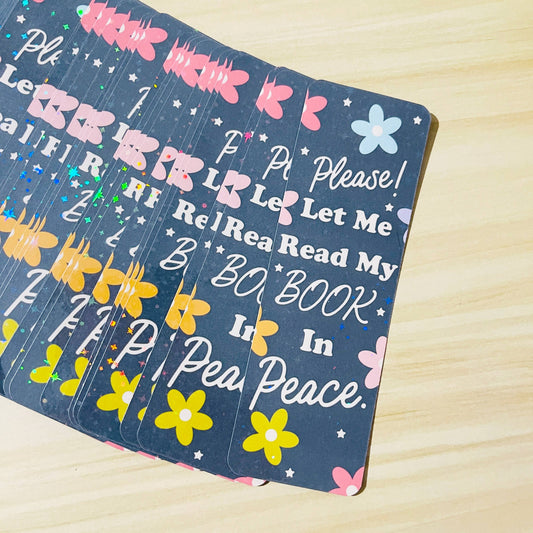 Please!
Let Me
Read My
BOOK
In
Peace.